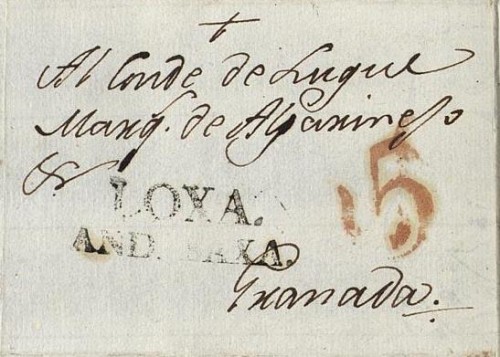 +
Al Conde de Luque
Marq.s de Algarinejo
&r
LOXA.
AND. BAXA.
5
Granada.